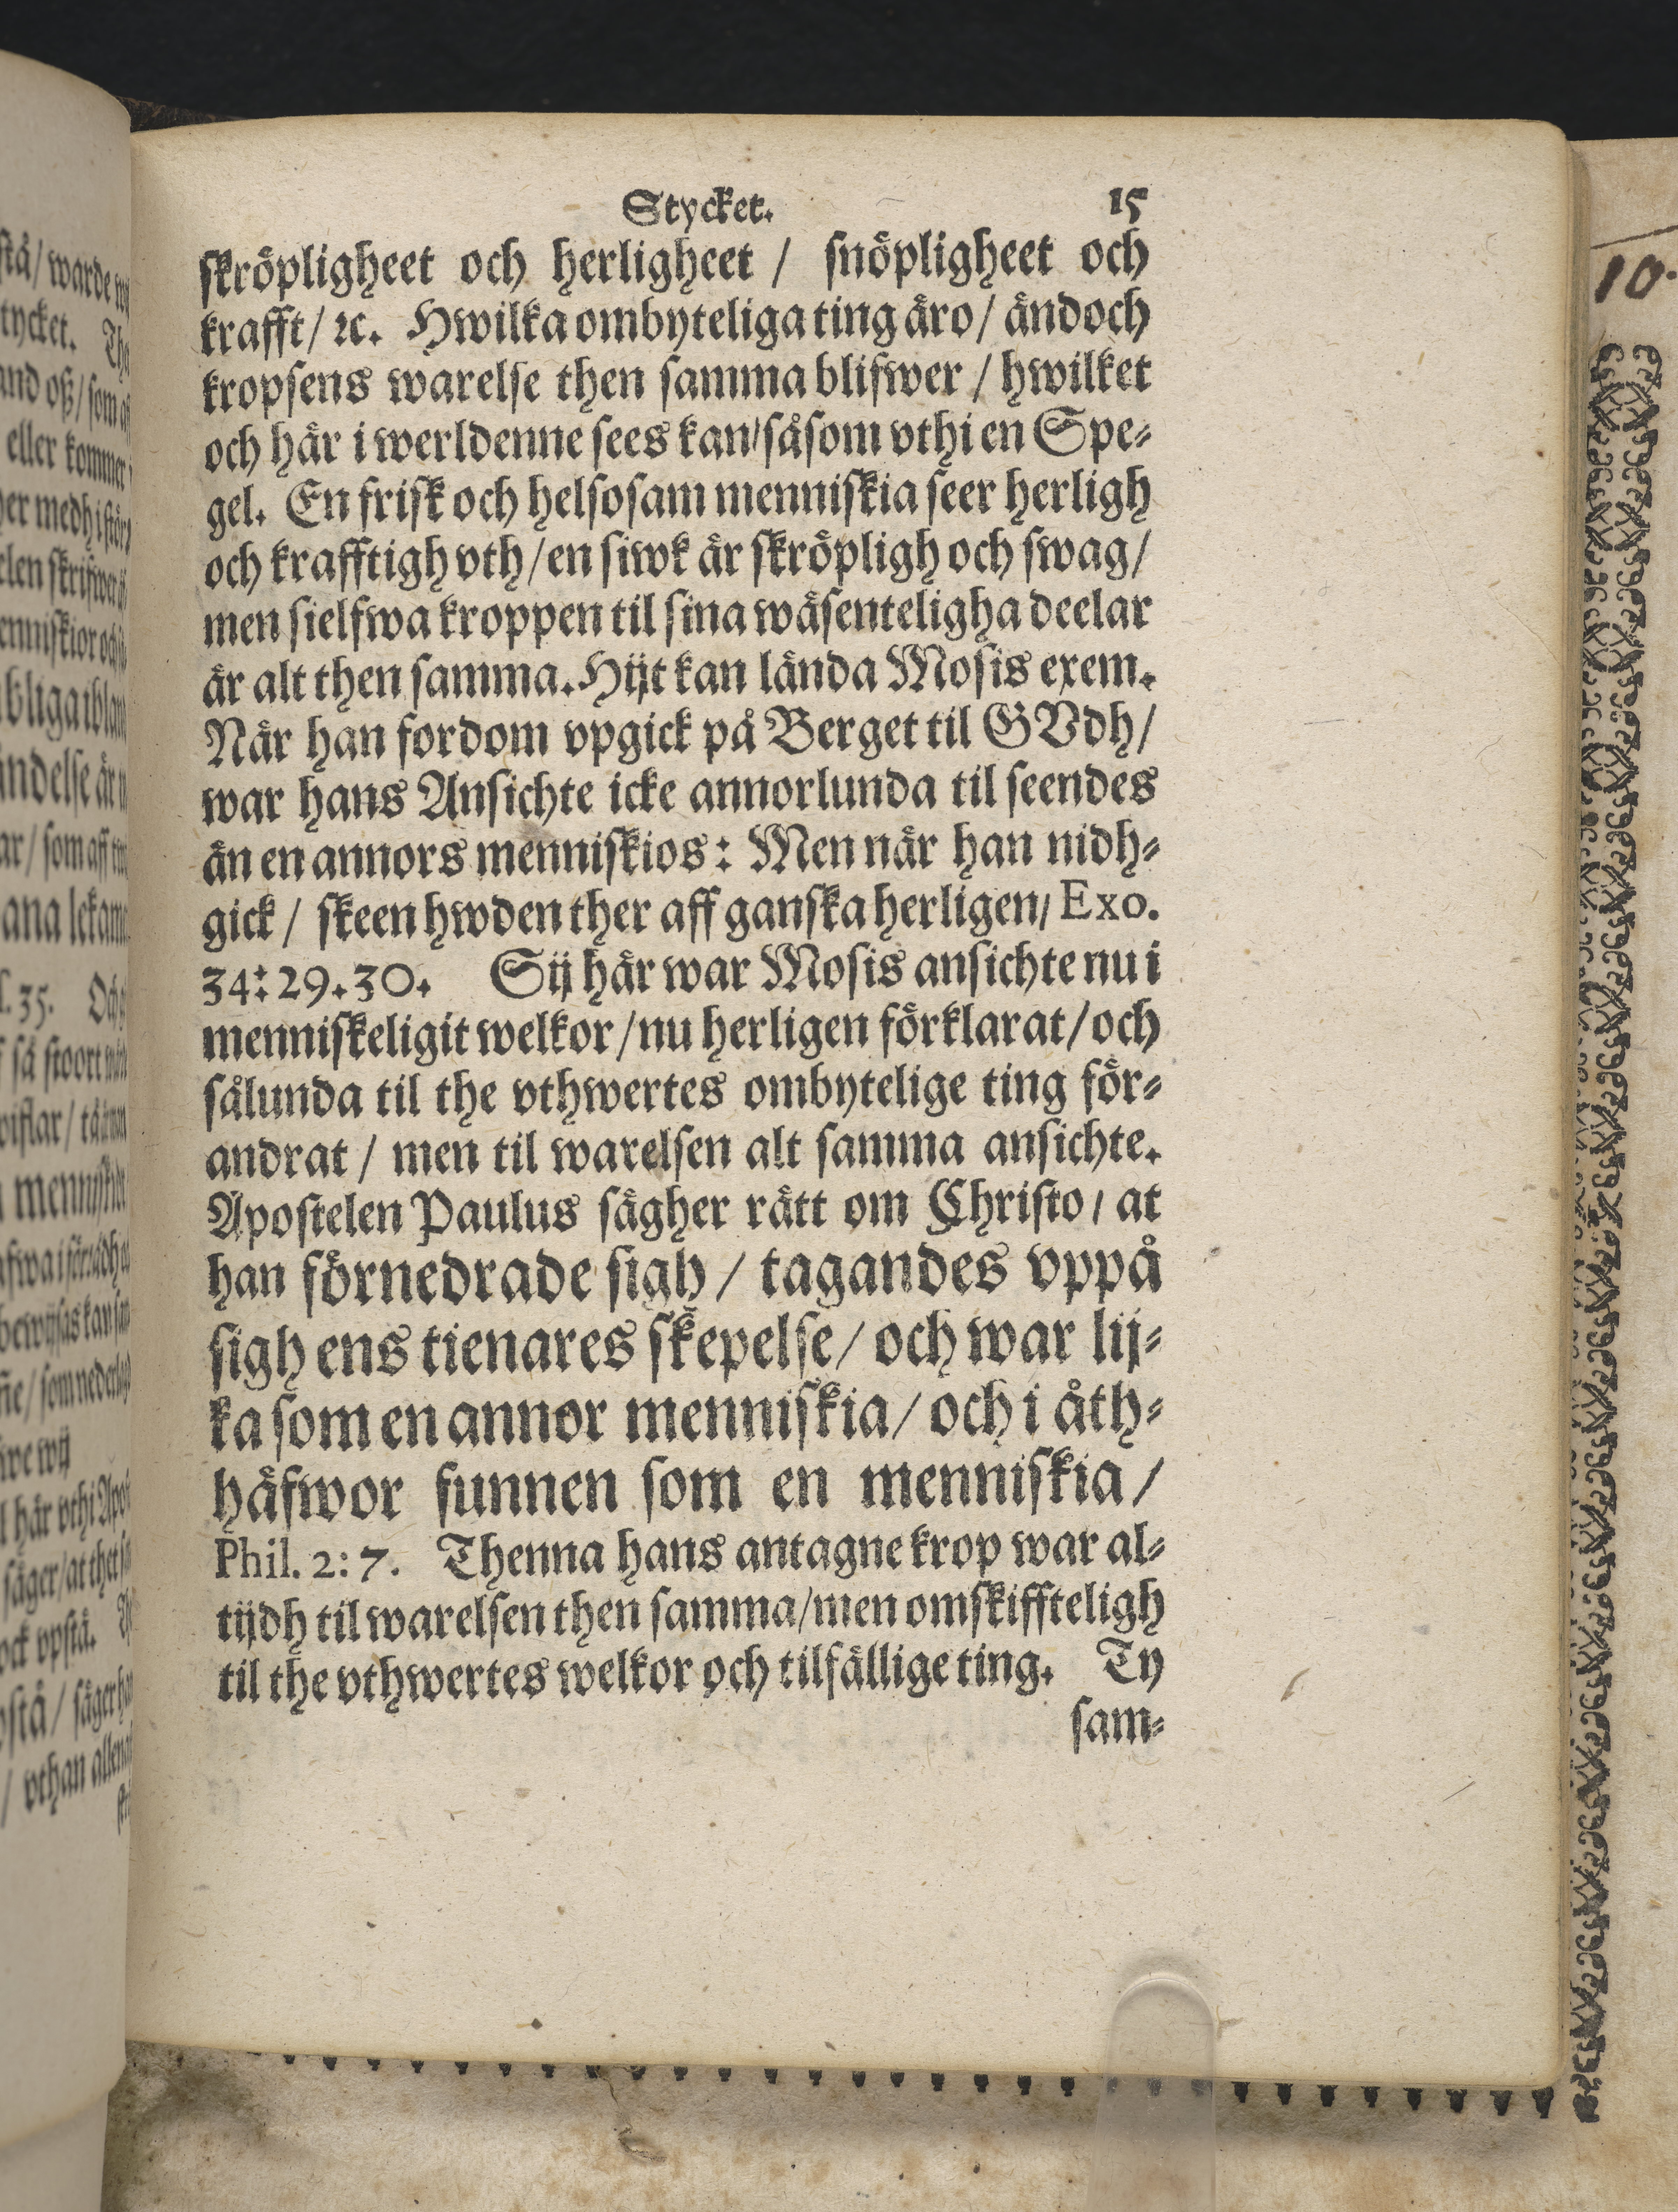 Stycket. 15
skröpligheet och herligheet / snöpligheet och
krafft/ ꝛc. Hwilka ombyteliga ting äro/ ändoch
kropsens warelse then samma blifwer / hwilket
och här i werldenne sees kan/såsom vthi en Spe-
gel. En frisk och helsosam menniskia seer herligh
och krafftigh vth/en siwk är skröpligh och swag/
men sielfwa kroppen til sina wäsenteligha deelar
är alt then samma. Hijt kan lända Mosis exem.
När han fordom vpgick på Berget til GVdh/
war hans Ansichte icke annorlunda til seendes
än en annors menniskios: Men när han nidh-
gick / skeen hwden ther aff ganska herligen/ Exo.
34:29.30. Sij här war Mosis ansichte nu i
menniskeligit welkor/nu herligen förklarat/och
sålunda til the vthwertes ombytelige ting för-
andrat / men til warelsen alt samma ansichte.
Apostelen Paulus sägher rätt om Christo/ at
han förnedrade sigh / tagandes vppå
sigh ens tienares skepelse/ och war lij-
ka som en annor menniskia/ och i åth-
häfwor funnen som en menniskia/
Phil. 2:7. Thenna hans antagne krop war al-
tijdh til warelsen then samma/men omskiffteligh
til the vthwertes welkor och tilfällige ting. Ty
sam-
10.